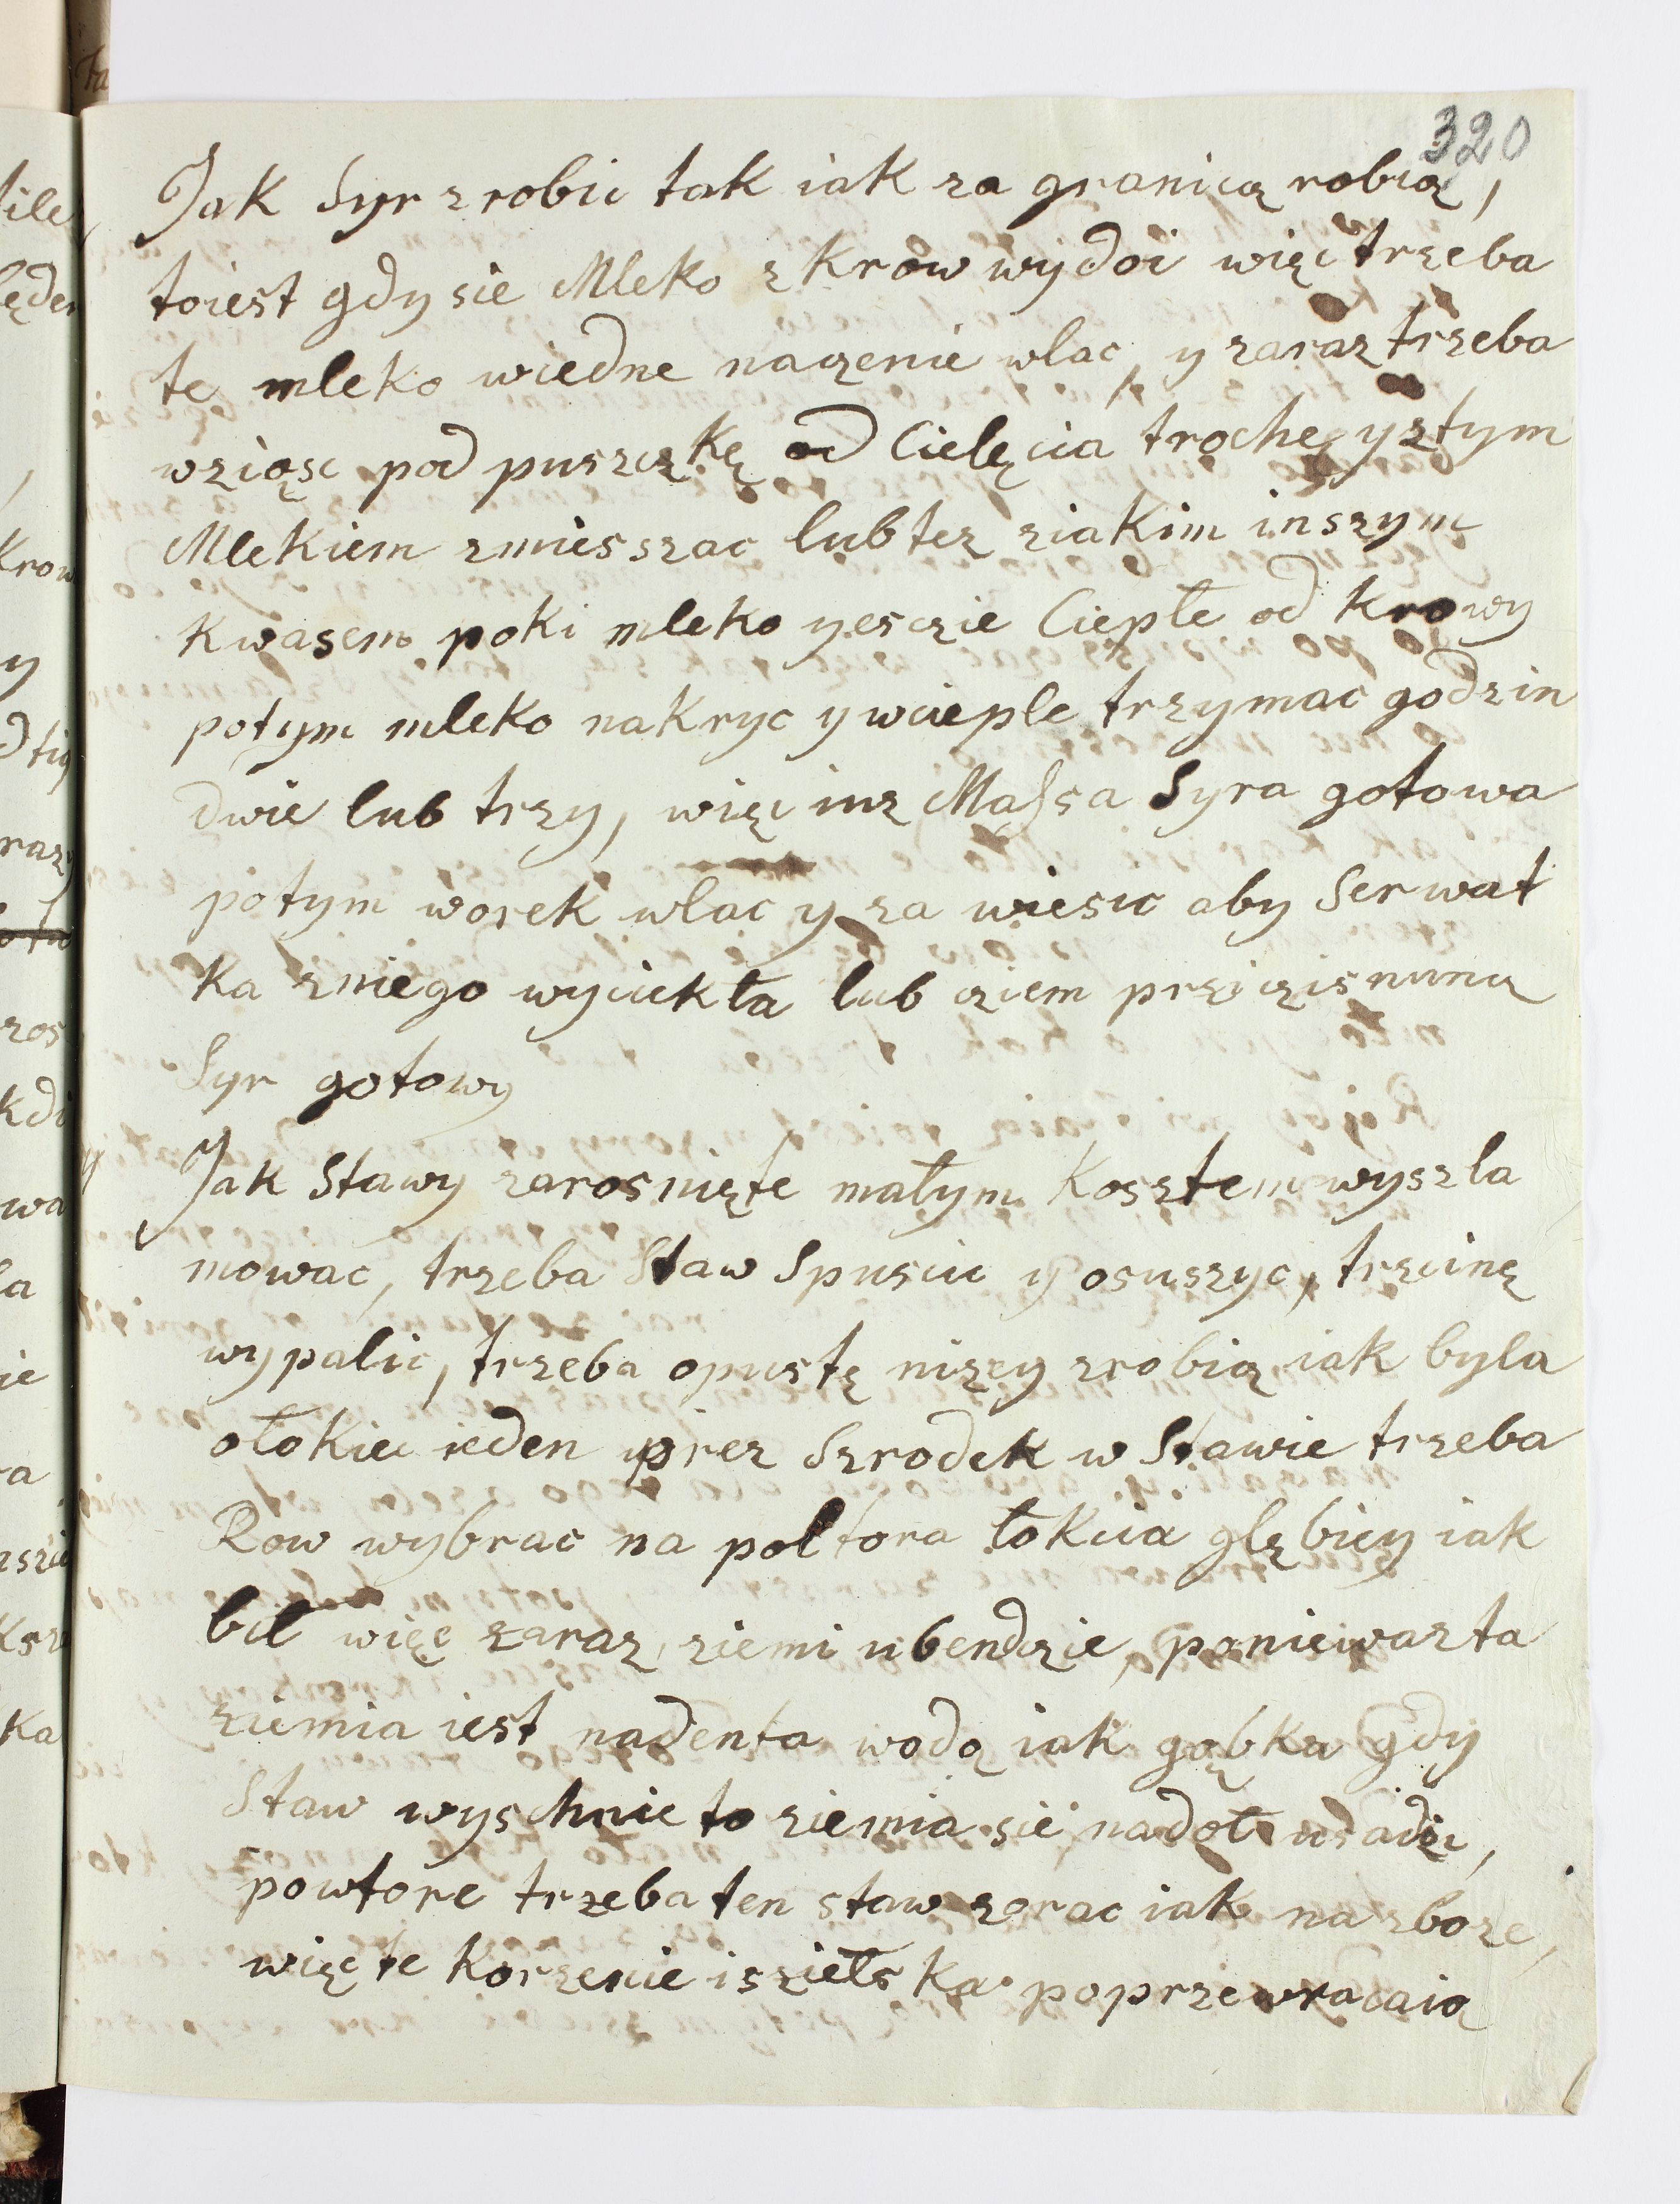 320
Jak Syr zrobic tak iak za granicą robią,
toiest gdy sie Mleko z Krow wydoi więc trzeba
te mleko wiedne naczenie wlac, y zaraz trzeba
wziąsc pod puszczkę od Cielęcia trochę y ztym
Mlekiem zmiesszac lub tez ziakim inszym
Kwasem poki mleko yesczie Ciepłe od Krowy
potym mleko nakryc y wcieple trzymac godzin
dwie lub trzy, więc iuz Massa Syra gotowa
potym worek wlac y za wiesic aby Serwat
ka zniego wyciekła lub cziem przicisnunc
Syr gotowy
Jak Stawy zarosnięte małym Kosztem wyszla
mowac, trzeba Staw Spuscic y osuszyc, trzcinę
wypalic, trzeba opustę nizey zrobią iak byla
ołokiec ieden przez Szrodek w Stawie trzeba
Row wybrac na poltora łokcia głębiey iak
bił więc zaraz ziemi ubendzie, poniewaz ta
ziemia iest nadenta wodą iak gąbka gdy
Staw wyschnie to ziemia sie nadoł usadzi,
powtore trzeba ten staw zorac iak na zboze,
więc te Korzenie i sziełska poprzewracaią